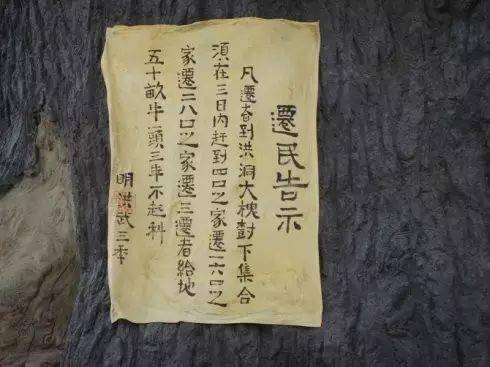 遷民告示
凡遷者到洪洞大槐樹下集合
須在三日內赶到四口之家遷一六口之
家遷二八口之家遷三遷者給地
五十畝牛頭三年不起科
明洪武三年